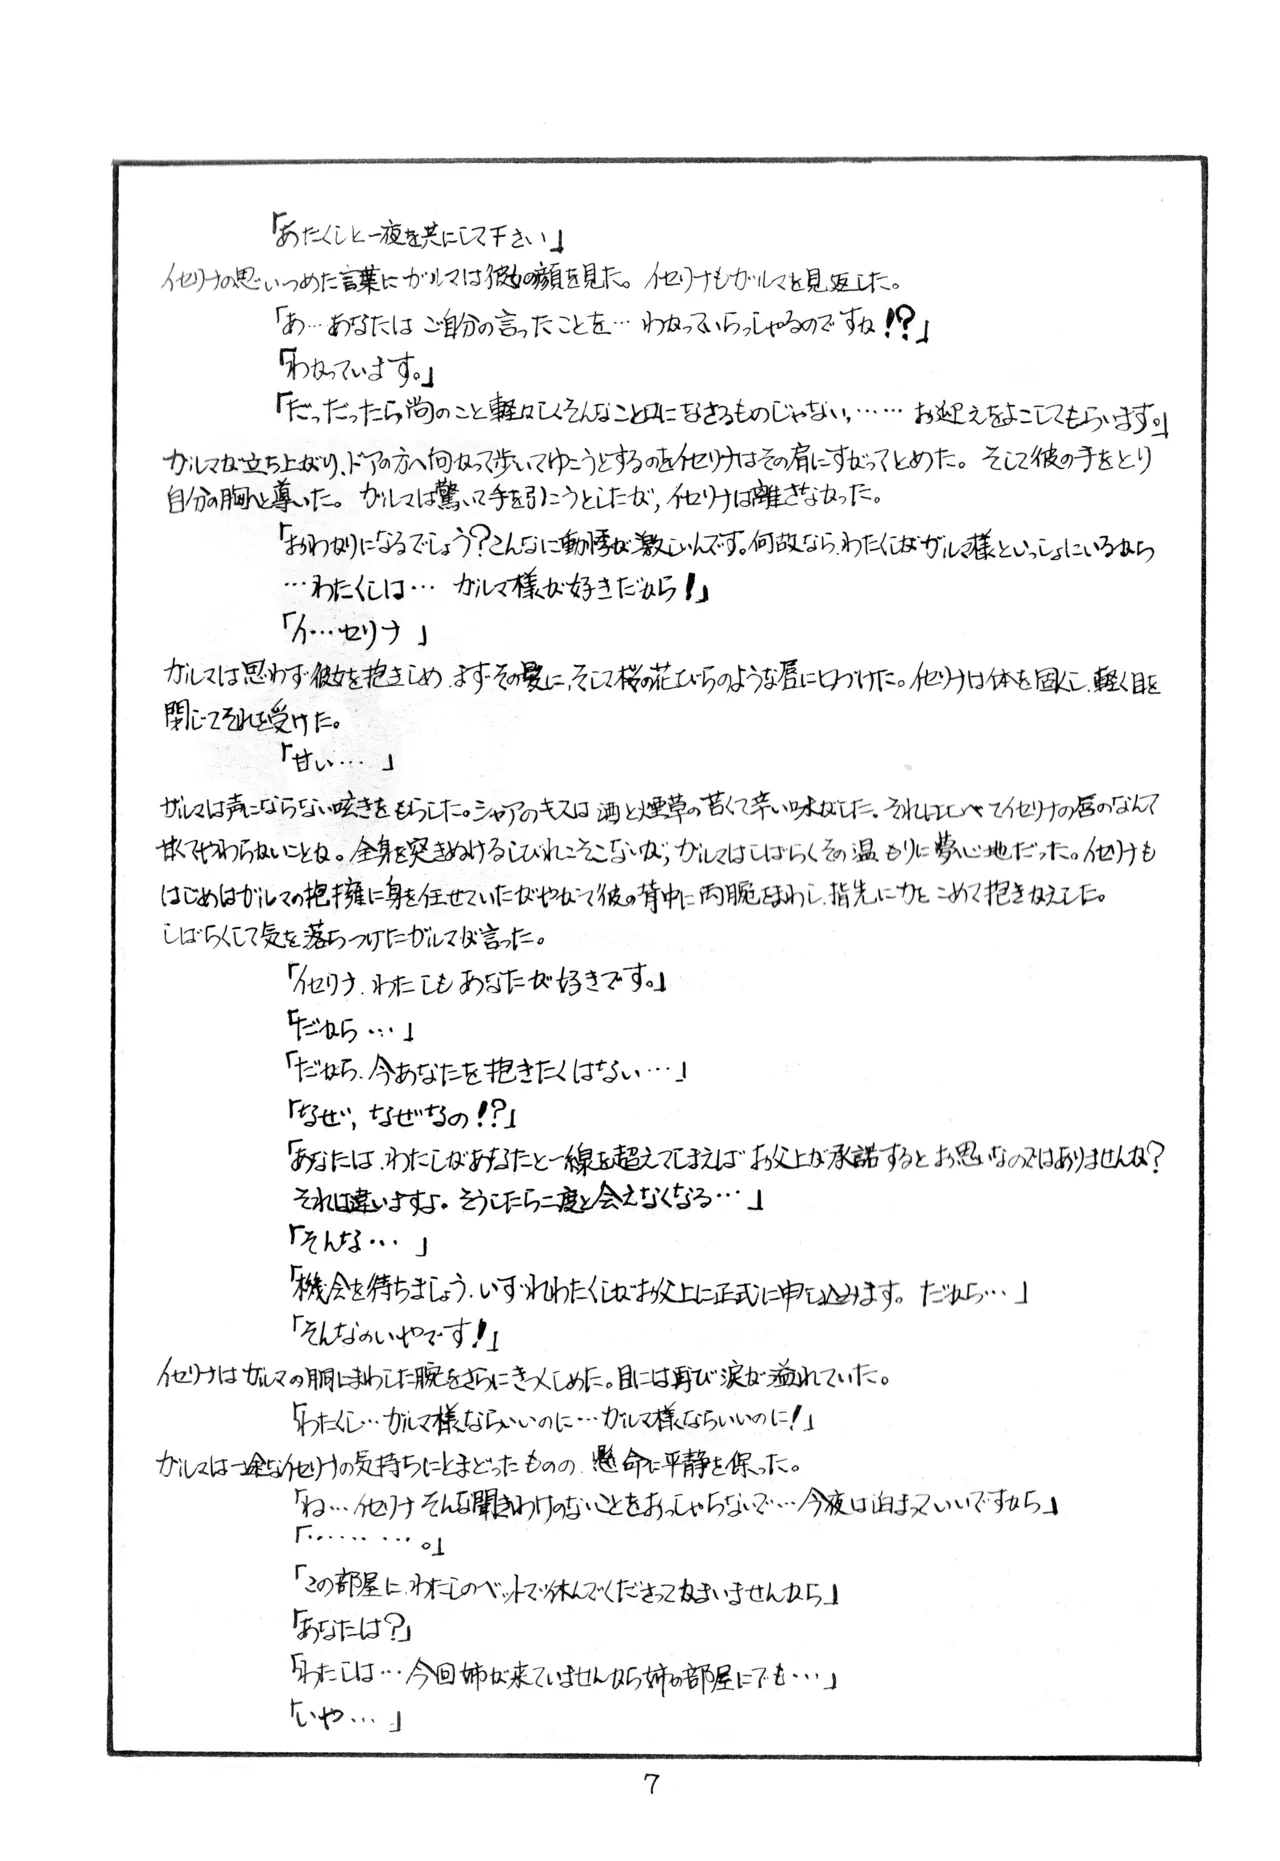 「あたくしと一夜を共にして下さい」
イセリナの思いつめた言葉にガルマは彼女の顔を見た。イセリナもガルマを見返した。
「あ…あなたは ご自分の言ったことを… わかっていらっしゃるのですね!?」
「わかっています。」
「だっだったら尚のこと軽々しくそんなこと口になさるものじゃない,…… お迎えをよこしてもらいます。」
ガルマが立ち上がり、ドアの方へ向かって歩いてゆこうとするのをイセリナはその肩にすがってとめた。そして彼の手をとり
自分の胸へと導いた。ガルマは驚いて手を引こうとしたが,イセリナは離さなかった。
「おわかりになるでしょう?こんなに動悸が激しいんです。何故なら、わたくしがガルマ様といっしょにいるから
…わたくしは… ガルマ様が好きだから!」
「イ…セリナ」
ガルマは思わず彼女を抱きしめ、まずその髪に、そして桜の花びらのような唇に口づけた。イセリナは体を固くし、軽く目を
閉じてそれを受けた。
「甘い…」
ガルマは声にならない呟きをもらした。シャアのキスは酒と煙草の苦くて辛い味がした。それに比べてイセリナの唇のなんて
甘くてやわらかいことか。全身を突きぬけるしびれこそないが,ガルマはしばらくその温もりに夢心地だった。イセリナも
はじめはガルマの抱擁に身を任せていたがやがて彼の背中に両腕をまわし、指先に力をこめて抱きかえした。
しばらくして気を落ちつけたガルマが言った。
「イセリナ、わたしもあなたが好きです。」
「だから…」
「だから、今あなたを抱きたくはない…」
「なぜ,なぜなの!?」
「あなたは、わたしがあなたと一線を超えてしまえばお父上が承諾するとお思いなのではありませんか?
それは違いますよ。そうしたら二度と会えなくなる…」
「そんな…」
「機会を待ちましょう、いずれわたくしがお父上に正式に申し込みます。だから…」
「そんなのいやです!」
イセリナはガルマの胴にまわした腕をさらにきつくしめた。目には再び涙が溢れていた。
「わたくし…ガルマ様ならいいのに…ガルマ様ならいいのに!」
ガルマは一途なイセリナの気持ちにとまどったものの、懸命に平静を保った。
「ね…イセリナ そんな聞きわけのないことをおっしゃらないで…今夜は泊まっていいですから」
「………。」
「この部屋に、わたしのベットで休んでくださってかまいませんから」
「あなたは?」
「わたしは…今回姉が来ていませんから姉の部屋にでも…」
「いや…」
7